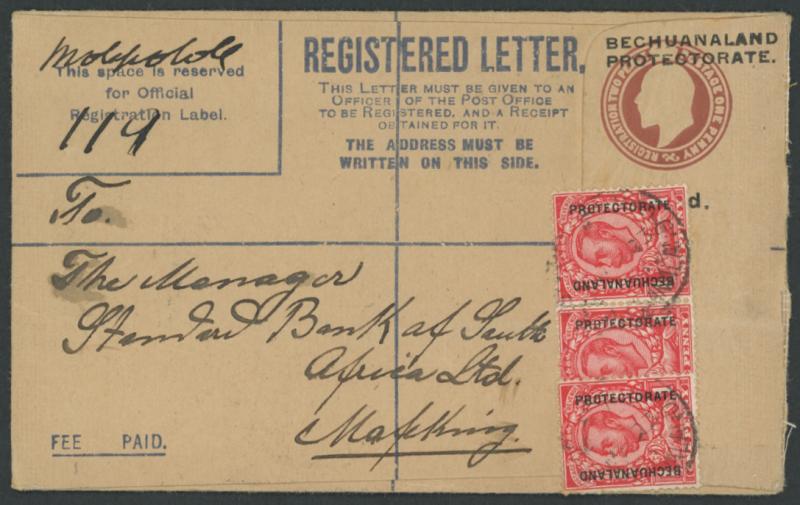 Molepolole
This space is reserved
for Official
Registration Label.
114
REGISTERED LETTER,
THIS LETTER MUST BE GIVEN TO AN
OFFICER OF THE POST OFFICE
TO BE REGISTERED, AND A RECEIPT
OBTAINED FOR IT.
THE ADDRESS MUST BE
WRITTEN ON THIS SIDE.
BECHUANALAND
PROTECTORATE.
POSTAGE ONE PENNY
REGISTRATION TWO PENCE
d.
To.
The Manager
Standard Bank of South
Africa Ltd.
Mafeking.
FEE PAID.
PROTECTORATE
BECHUANALAND
PROTECTORATE
PROTECTORATE
BECHUANALAND